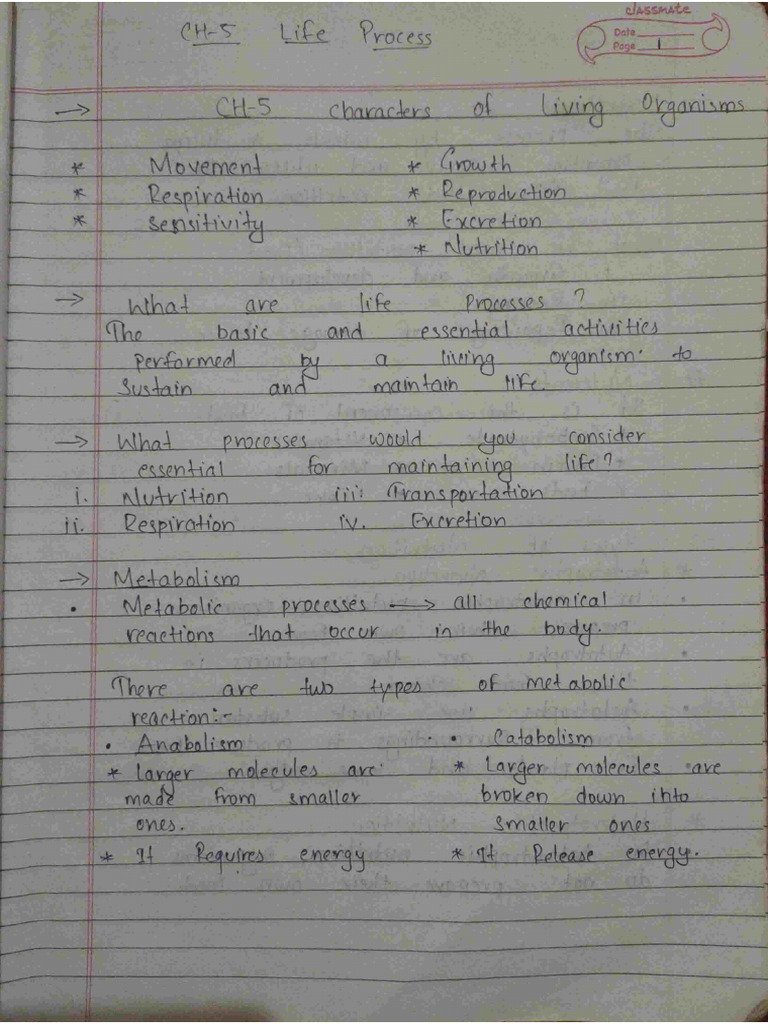 classmate
Date
Page 1
CH-5 Life Process
→ CH-5 characters of Living Organisms
* Movement * Growth
* Respiration * Reproduction
* sensitivity * Excretion
* Nutrition
→ What are life Processes ?
The basic and essential activities
performed by a living organism to
sustain and maintain life.
→ What processes would you consider
essential for maintaining life?
i. Nutrition iii. Transportation
ii. Respiration iv. Excretion
→ Metabolism
• Metabolic processes → all chemical
reactions that occur in the body.
There are two types of metabolic
reaction:-
• Anabolism • Catabolism
* Larger molecules are * Larger molecules are
made from smaller broken down into
ones. smaller ones
* It Requires energy * It Release energy.